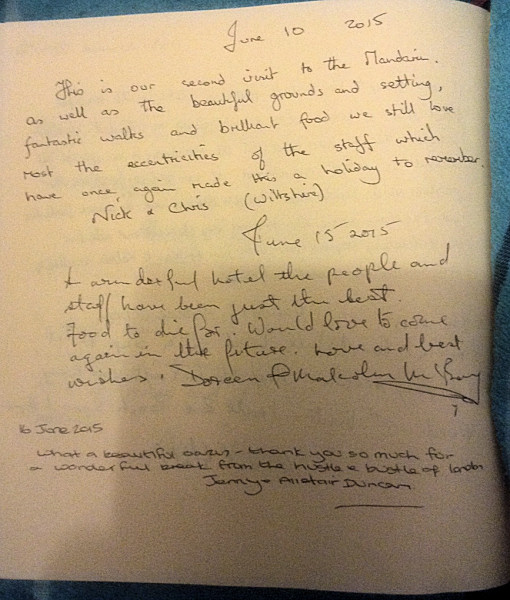 June 10 2015
This is our second visit to the Mandarin.
as well as the beautiful grounds and setting,
fantastic walks and brilliant food we still love
most the eccentricities of the staff which
have once again made this a holiday to remember.
Nick & Chris (Wiltshire)
June 15 2015
A wonderful hotel the people and
staff have been just the best.
Food to die for. Would love to come
again in the future. Love and best
wishes. Doreen & Malcolm
16 June 2015
What a beautiful oasis - thank you so much for
a wonderful break from the hustle & bustle of London
Jenny & Alistair Duncan.